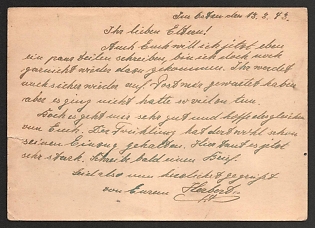 Im Osten den 13.3.43.
Ihr lieben Eltern!
Auch Euch will ich jetzt eben
ein paar Zeilen schreiben, bin ich doch noch
garnicht wieder dazu gekommen. Ihr werdet
auch sicher wieder auf Post mir gewartet haben
aber es ging nicht hatte so vielen tun.
Doch es geht mir sehr gut und hoffe desgleichen
von Euch. Der Frühling hat dort wohl schon
seinen Einzug gehalten. Hier taut es jetzt
sehr stark. Schreibt bald einen Brief.
Seit also nun herzlichst gegrüßt
von Eurem Herbert